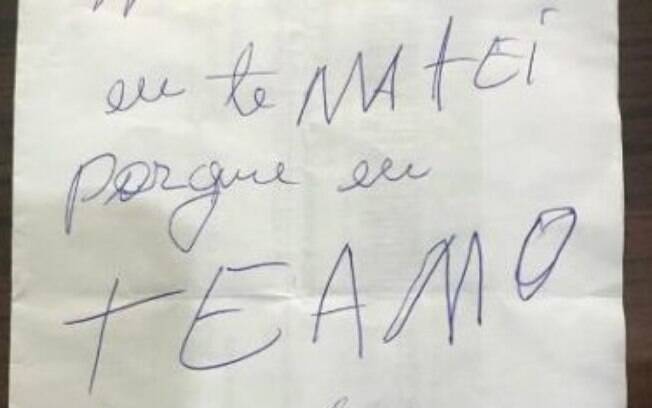 eu te MAtEi
porque eu
tEAMO